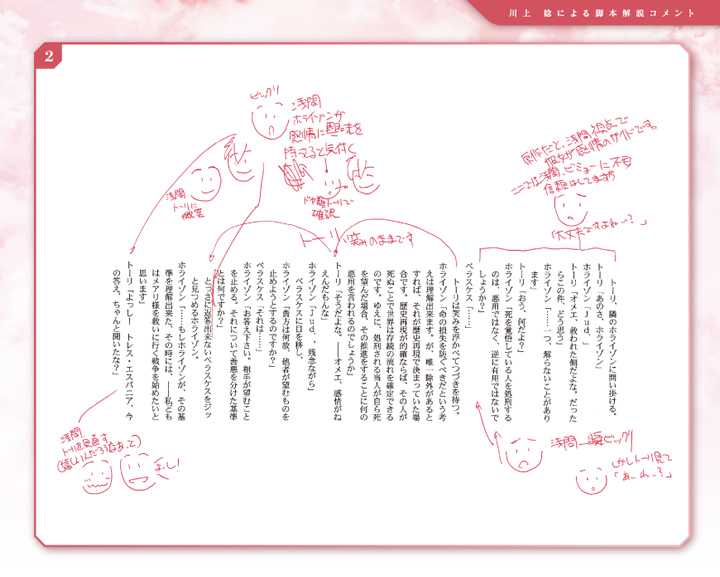 川上 稔による脚本解説コメント
2
トーリ、隣のホライゾンに問い掛ける。
トーリ「あのさ、ホライゾン」
ホライゾン「Ｊｕｄ．」
トーリ「オメエ、救われた側だよな。だった
らこの件、どう思う」
ホライゾン「……一つ、解らないことがあり
ます」
トーリ「おう、何だよ？」
ホライゾン「死を覚悟している人を処刑する
のは、悪用ではなく、逆に有用ではないで
しょうか？」
ベラスケス「……」
トーリは笑みを浮かべてつづきを待つ。
ホライゾン「命の損失を防ぐべきだという考
えは理解出来ます。が、唯一除外があると
すれば、それが歴史再現で決まっていた場
合です。歴史再現が的確ならば、その人が
死ぬことで世界は存続の流れを確定できる
のです。ゆえに、処刑される当人が自ら死
を望んだ場合、その推進をすることに何の
悪用を言われるのでしょうか」
トーリ「そうだよな。――オメエ、感情がね
えんだもんな」
ホライゾン「Ｊｕｄ．、残念ながら」
ベラスケスに目を移し、
ホライゾン「貴方は何故、他者が望むものを
止めようとするのですか？」
ベラスケス「それは……」
ホライゾン「お答え下さい。相手が望むこと
を止める。それについて善悪を分けた基準
とは何ですか？」
とっさに返答出来ないベラスケスをジッ
と見つめるホライゾン。
ホライゾン「……もしホライゾンが、その基
準を理解出来た、その時には、――私ども
はメアリ様を救いに行く戦争を始めたいと
思います」
トーリ「よっし！ トレス・エスパニア、今
の答え、ちゃんと聞いたな？」
原作だと、浅間視点で
「大丈夫ですよねー…？」
浅間一瞬ビックリ
しかしトーリ見て
「あーれー？」
ビックリ
浅間
ホライゾンが
感情に
気付く
ドヤ顔トーリで
確認
トーリ笑みのままです
浅間
トーリに
微笑
浅間
トーリを見直す
よし！